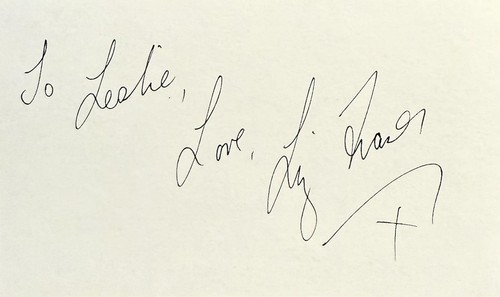 To Leslie,
Love, Liz Fraser
x